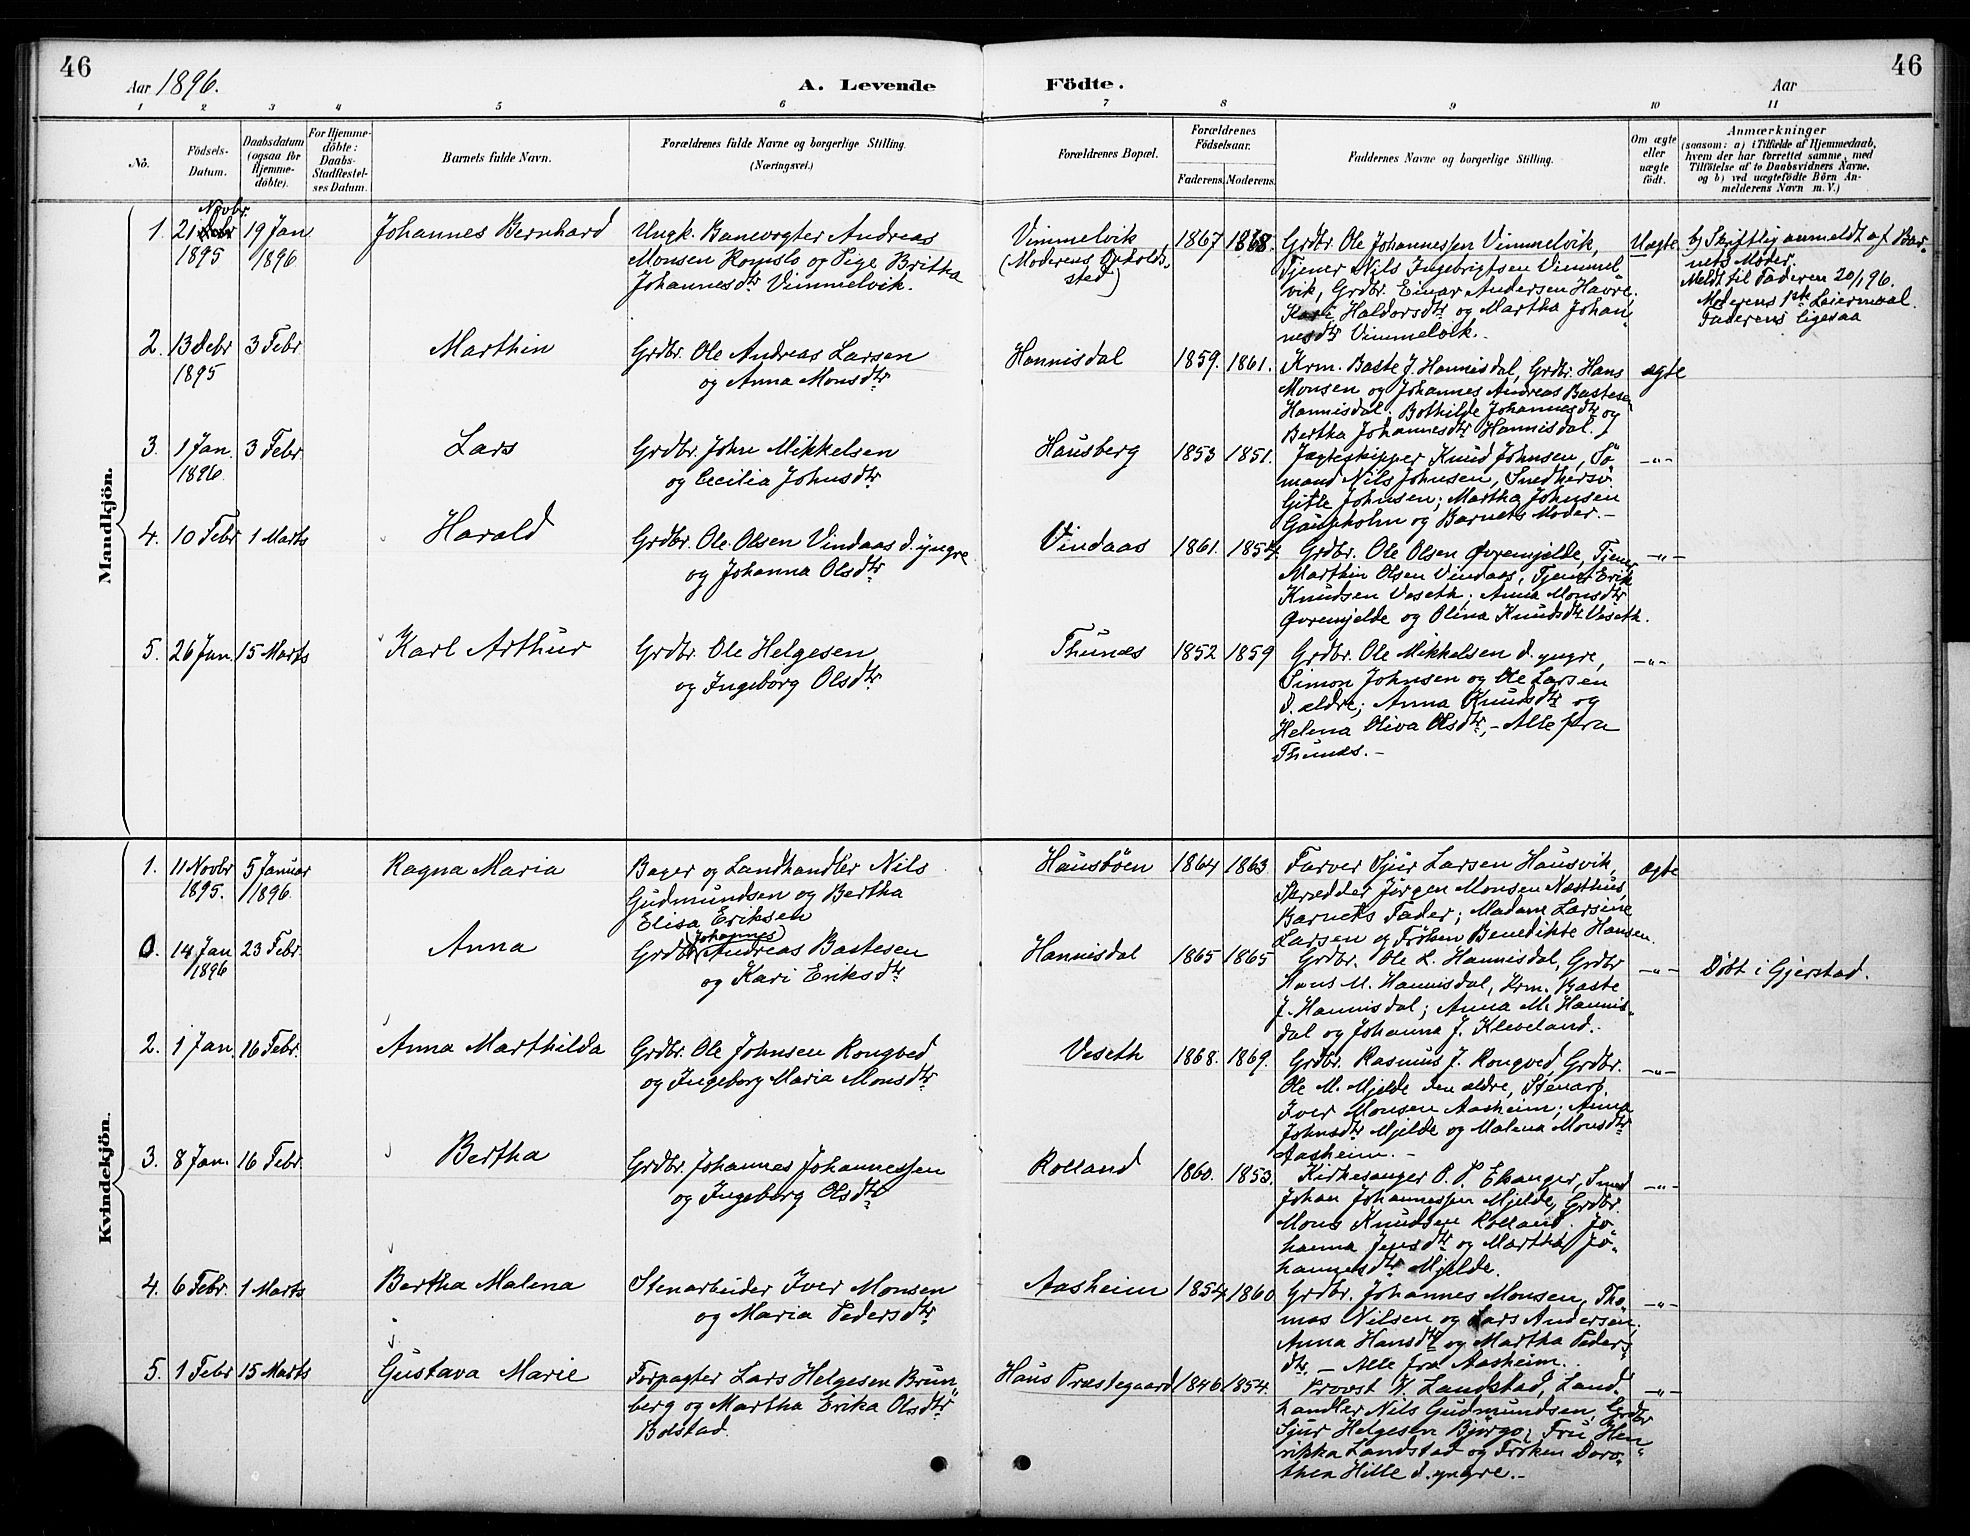 46
46
Aar 1896.
A. Levende
Födte.
Aar
1 2 3 4 5 6 7 8 9 10 11
No.
Födsels-
Datum.
Daabsdatum
(ogsaa for
Hjemme-
döbte).
For Hjemme-
döbte:
Daabs-
Stadfæstel-
ses Datum.
Barnets fulde Navn.
Forældrenes fulde Navne og borgerlige Stilling.
(Næringsvei.)
Forældrenes Bopæl.
Forældrenes
Födselsaar.
Faderens. Moderens.
Faddernes Navne og borgerlige Stilling.
Om ægte
eller
uægte
födt.
Anmærkninger
(saasom: a) i Tilfælde af Hjemmedaab,
hvem der har forrettet samme, med
Tilföielse af to Daabsvidners Navne,
og b) ved uægtefödte Börn An-
melderens Navn m. V.)
Mandkjön.
1. 21 Novbr. 1895
19 Jan. 1896
Johannes Bernhard
Ungk. Banevogter Andreas
Monsen Romslo og Pige Britha
Johannesdtr Vimmelvik.
Vimmelvik
(Moderens Opholds-
sted)
1867 1868.
Grdbr. Ole Johannessen Vimmelvik,
Tjener Nils Ingebrigtsen Vimmel
vik, Grdbr. Einar Andersen Havre.
Kari Haldorsdtr og Martha Johan-
nesdtr Vimmelvik.
Uægte
b) Skriftlig anmeldt af Bar-
nets Moder.
Meldt til Faderen 20/1 96.
Moderens 1ste Leiermaal.
Faderens ligesaa
2. 13 Debr 1895
3 Febr
Marthin
Grdbr. Ole Andreas Larsen
og Anna Monsdtr
Hannisdal
1859. 1861.
Krm. Baste J. Hannisdal, Grdbr. Hans
Monsen og Johannes Andreas Bastesen
Hannisdal. Bothilde Johannesdtr og
Bertha Johannesdtr Hannisdal.
ægte
3. 1 Jan. 1896.
3 Febr.
Lars
Grdbr. John Mikkelsen
og Cecilia Johnsdtr
Hausberg
1853 1851.
Jægteskipper Knud Johnsen, Sö
mand Nils Johnsen, Snedkersv.
Gitle Johnsen; Martha Johnsen
Gaupholm og Barnets Moder.-
-"-
4. 10 Febr 1 Marts
Harald
Grdbr. Ole Olsen Vindaas d. yngre
og Johanna Olsdtr
Vindaas
1861. 1854.
Grdbr. Ole Olsen Øvremjelde, Tjener
Marthin Olsen Vindaas, Tjener Erik
Knudsen Veseth; Anna Monsdtr
Øvremjelde og Olina Knudsdtr Veseth.
-"-
5. 26 Jan. 15 Marts
Karl Arthur
Grdbr. Ole Helgesen
og Ingeborg Olsdtr
Thunæs
1852 1859
Grdbr. Ole Mikkelsen d. yngre,
Simon Johnsen og Ole Larsen
d. ældre; Anna Knudsdtr og
Helena Oliva Olsdtr, - Alle fra
Thunæs.-
-"-
Kvindekjön.
1. 11 Novbr 1895.
5 Januar 1896.
Ragna Maria
Bager og Landhandler Nils
Gudmundsen og Bertha
Elisa Eriksen
Hausbøen
1864 1863
Farver Sjur Larsen Hausvik,
Skrædder Jørgen Monsen Næsthus,
Barnets Fader; Madam Larsine
Larsen og Frøken Benedikte Hansen.
ægte
0. 14 Jan 1896
23 Febr.
Anna
Grdbr. (Johannes) Andreas Bastesen
og Kari Eriksdtr
Hannisdal
1865 1865
Grdbr. Ole L. Hannisdal, Grdbr
Hans M. Hannisdal, Krm. Baste
J. Hannisdal; Anna M. Hannis-
dal og Johanna J. Kleveland.
-"-
Døbt i Gjerstad.
2. 1 Jan. 16 Febr.
Anna Marthilda
Grdbr. Ole Johnsen Rongved
og Ingeborg Maria Monsdtr
Veseth
1868. 1869.
Grdbr. Rasmus J. Rongved, Grdbr.
Ole M. Mjelde den ældre, Stenarb.
Iver Monsen Aasheim; Anna
Johnsdtr Mjelde og Malena Monsdtr
Aasheim.-
-"-
3. 8 Jan. 16 Febr.
Bertha
Grdbr. Johannes Johannessen
og Ingeborg Olsdtr
Rolland
1860. 1853.
Kirkesanger O. P. Ekanger, Smed
Johan Johannessen Mjelde, Grdbr.
Mons Knudsen Rolland. Jo-
hanna Jensdtr og Martha Jo-
hannesdtr Mjelde.
-"-
4. 6 Febr. 1 Marts
Bertha Malena
Stenarbeider Iver Monsen
og Maria Pedersdtr
Aasheim
1854 1860
Grdbr. Johannes Monsen, Tho-
mas Nilsen og Lars Andersen,
Anna Hansdtr og Martha Peders
dtr - Alle fra Aasheim.
-"-
5. 1 Febr 15 Marts
Gustava Marie
Forpagter Lars Helgesen Brun-
berg og Martha Erika Olsdtr
Bolstad.
Haus Præstegaard
1846 1854.
Provst W. Landstad, Land-
handler Nils Gudmundsen, Grdbr
Sjur Helgesen Björgo; Fru Hen-
rikka Landstad og Frøken Doro-
thea Hille d. yngre.-
-"-